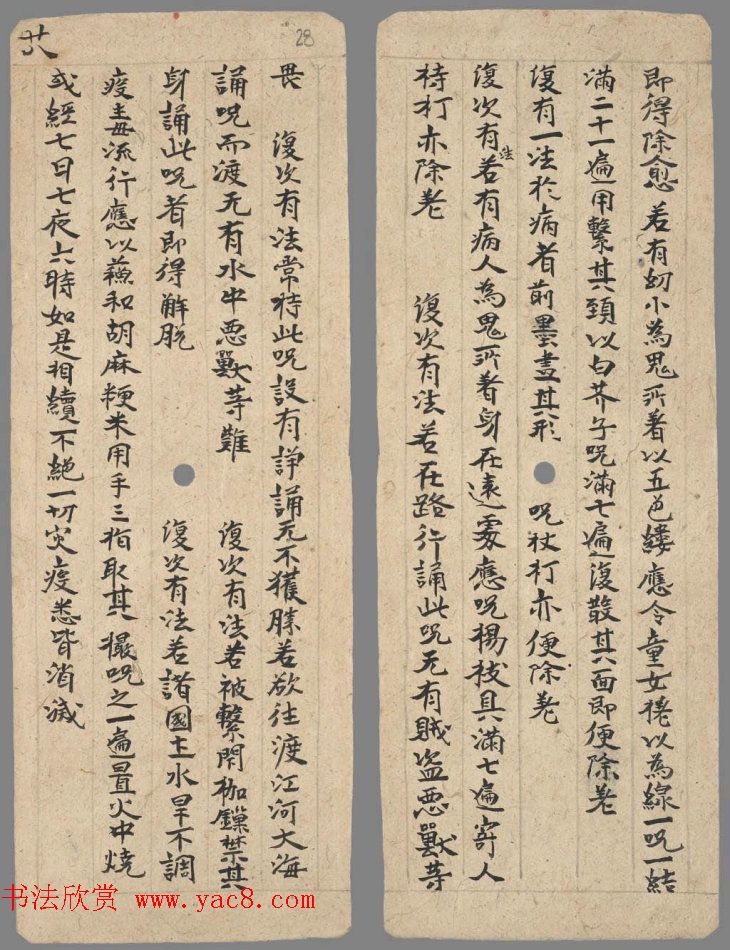 即得除愈 若有幼小為鬼所著以五色縷應令童女以為線一呪一結
滿二十一遍用繫其頸以白芥子呪滿七遍復散其面即便除差
復有一法於病者前墨畫其形 呪杖打亦便除差
復次有法若有病人為鬼所著身在遠處應呪楊枝具滿七遍寄人
持打亦除差 復次有法若在路行誦此呪无有賊盜惡獸等
28
廿八
畏 復次有法常持此呪設有諍誦无不獲勝若欲往渡江河大海
誦呪而渡无有水中惡獸等難 復次有法若被繫閉枷鏁禁其
身誦此呪者即得解脫 復次有法若諸國土水旱不調
疫毒流行應以蘇和胡麻粳米用手三指取其撮呪之一遍置火中燒
或經七日七夜六時如是相續不絕一切灾疫悉皆消滅
书法欣赏 www.yac8.com